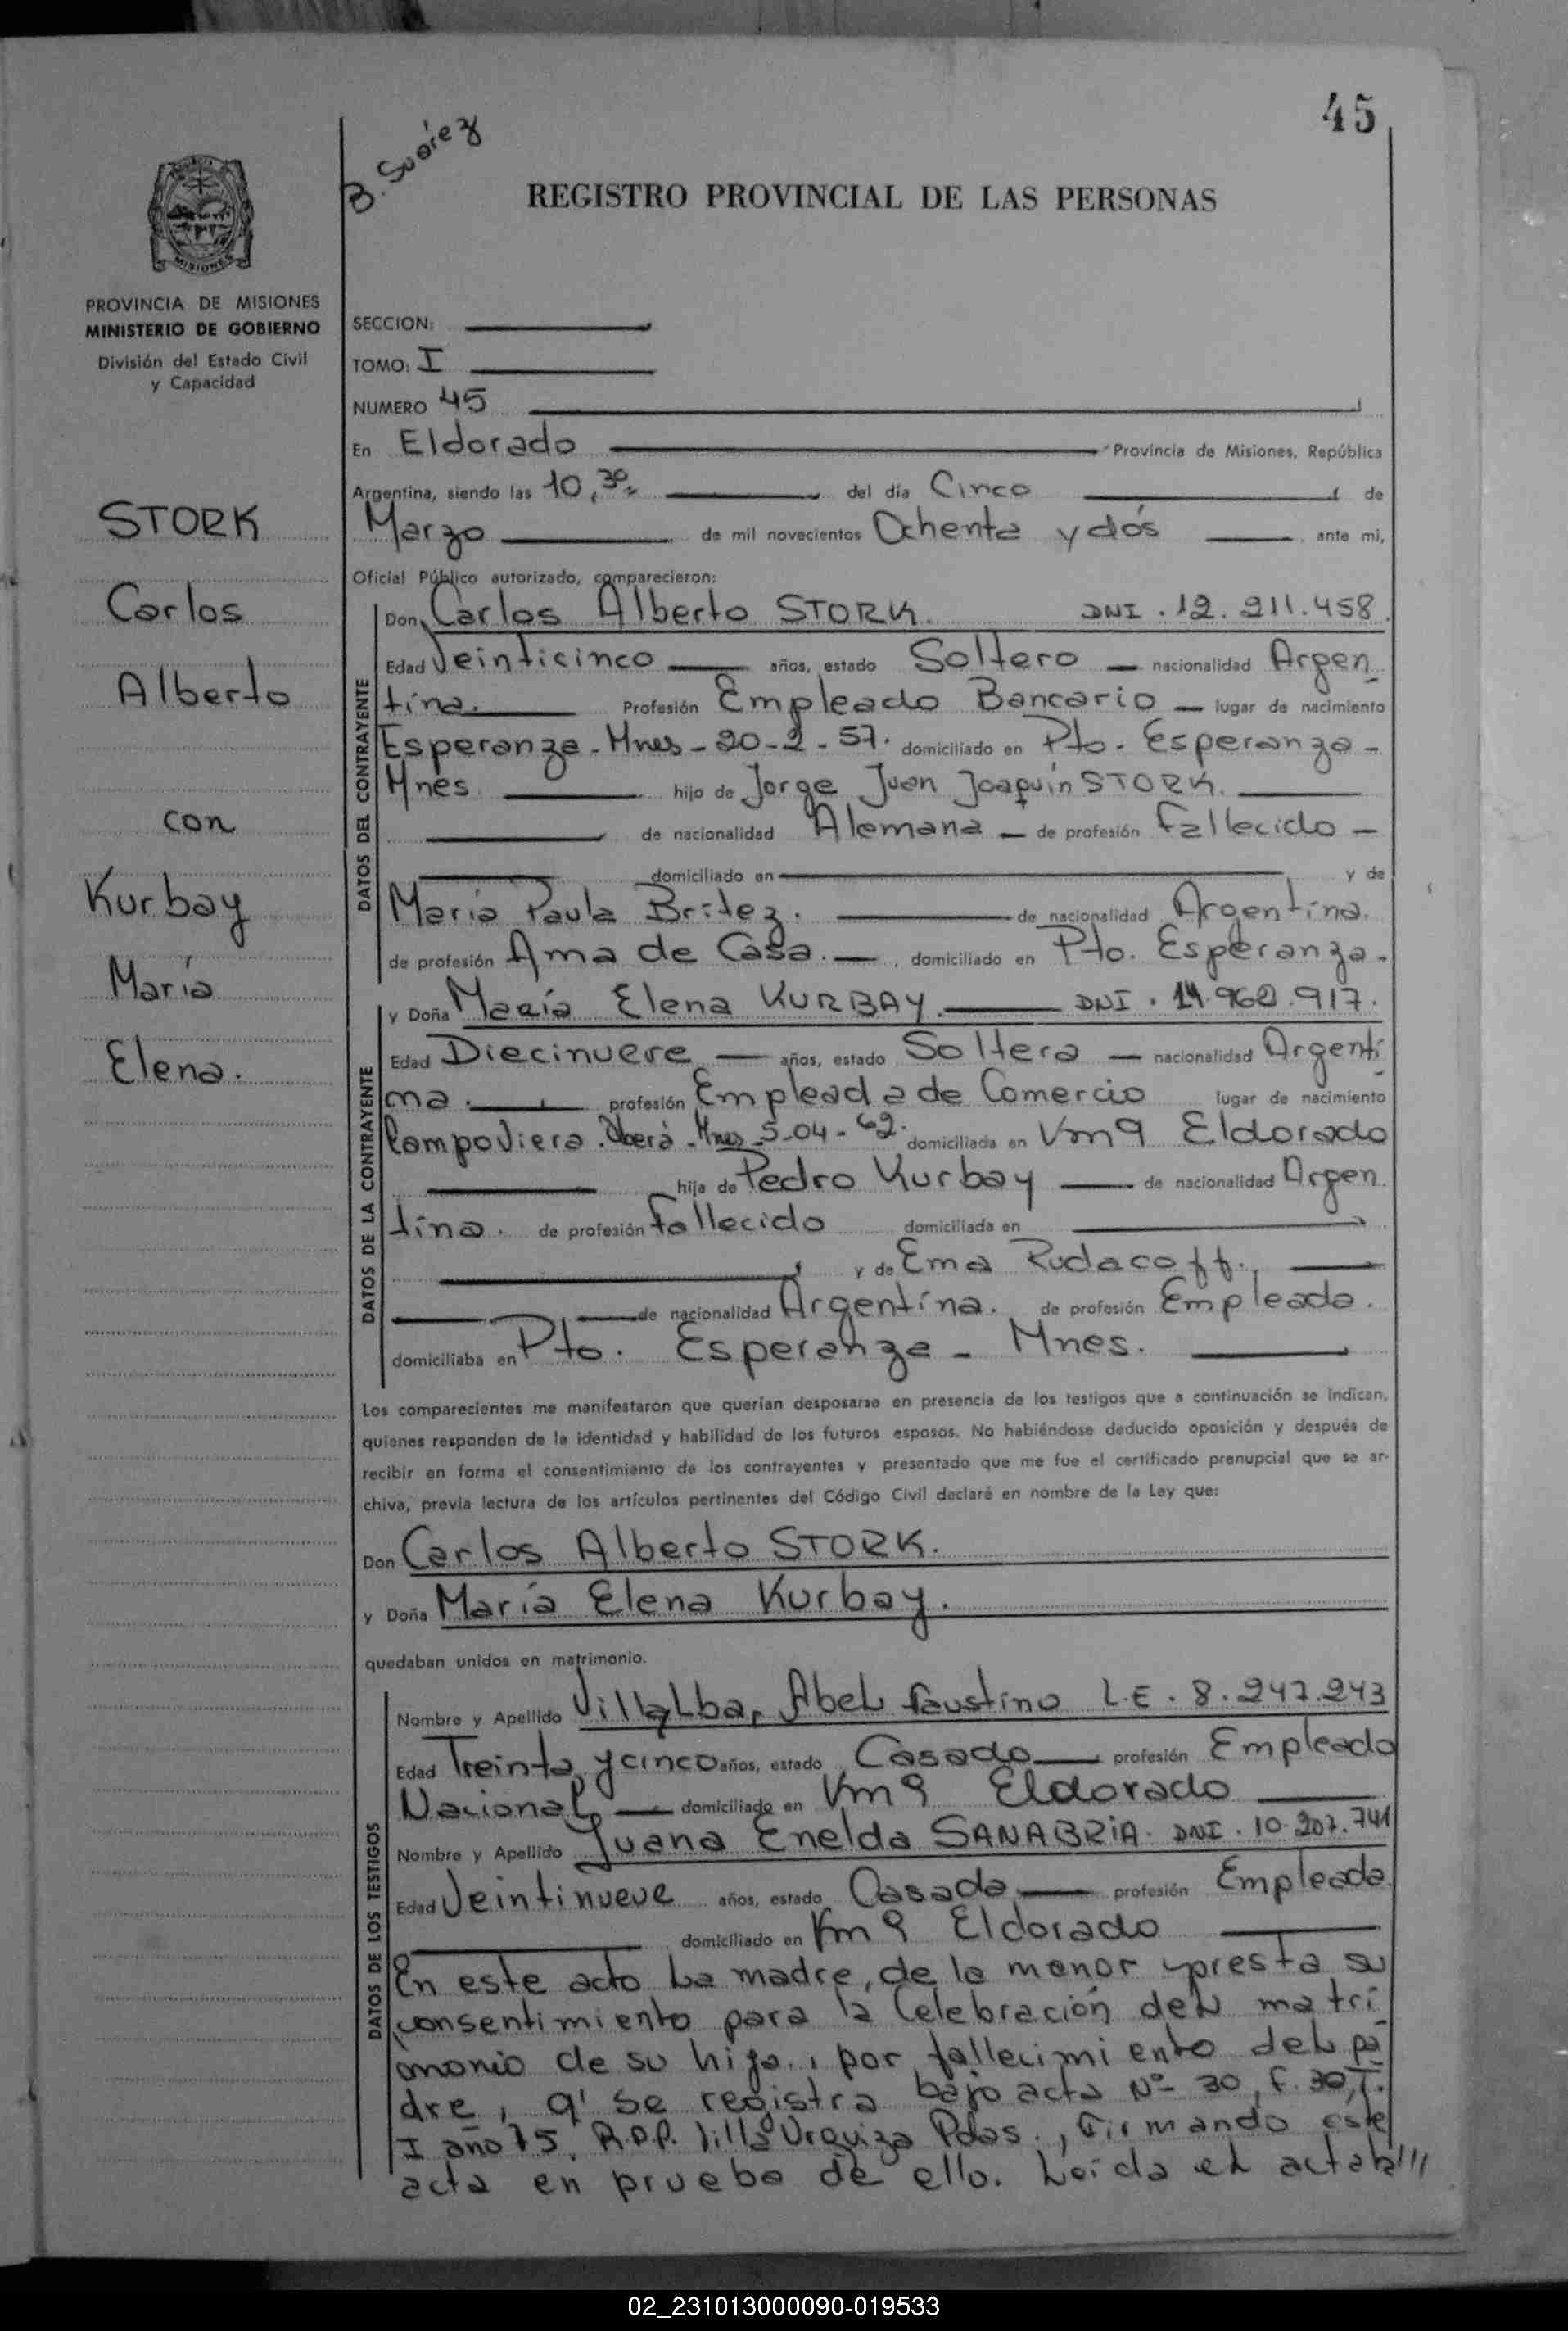 45
B. Suárez
REGISTRO PROVINCIAL DE LAS PERSONAS
MISIONES
PROVINCIA DE MISIONES
MINISTERIO DE GOBIERNO
División del Estado Civil
y Capacidad
STORK
Carlos
Alberto
con
Kurbay
María
Elena.
SECCION:
TOMO: I
NUMERO 45
En Eldorado Provincia de Misiones, República
Argentina, siendo las 10,30 del día Cinco de
Marzo de mil novecientos Ochenta y dós ante mi,
Oficial Público autorizado, comparecieron:
DATOS DEL CONTRAYENTE
Don Carlos Alberto STORK. DNI. 12.211.458
Edad Veinticinco años, estado Soltero nacionalidad Argen
tina. Profesión Empleado Bancario lugar de nacimiento
Esperanza - Mnes - 20-2-57. domiciliado en Pto. Esperanza -
Mnes hijo de Jorge Juan Joaquín STORK.
de nacionalidad Alemana de profesión Fallecido
domiciliado en y de
María Paula Britez. de nacionalidad Argentina.
de profesión Ama de Casa. domiciliado en Pto. Esperanza.
DATOS DE LA CONTRAYENTE
y Doña María Elena KURBAY. DNI. 14.960.917.
Edad Diecinueve años, estado Soltera nacionalidad Argenti
na. profesión Empleada de Comercio lugar de nacimiento
Oberá - Mnes - 5-04-62. domiciliada en Km 9 Eldorado
hija de Pedro Kurbay de nacionalidad Argen
tina. de profesión Fallecido domiciliada en
y de Ema Rudacoff.
de nacionalidad Argentina. de profesión Empleada.
domiciliaba en Pto. Esperanza - Mnes.
Los comparecientes me manifestaron que querían desposarse en presencia de los testigos que a continuación se indican,
quienes responden de la identidad y habilidad de los futuros esposos. No habiéndose deducido oposición y después de
recibir en forma el consentimiento de los contrayentes y presentado que me fue el certificado prenupcial que se ar-
chiva, previa lectura de los artículos pertinentes del Código Civil declaré en nombre de la Ley que:
Don Carlos Alberto STORK.
y Doña María Elena Kurbay.
quedaban unidos en matrimonio.
DATOS DE LOS TESTIGOS
Nombre y Apellido Villalba, Abel Faustino L.E. 8.247.243
Edad Treinta y cinco años, estado Casado profesión Empleado
Nacional domiciliado en Km 9 Eldorado
Nombre y Apellido Juana Enelda SANABRIA. DNI. 10.207.741
Edad Veintinueve años, estado Casada profesión Empleada
domiciliado en Km 9 Eldorado
En este acto La madre, de la menor presta su
consentimiento para la Celebración del matri
monio de su hija, por fallecimiento del pa
dre, q' se registra bajo acta Nº 30, F. 30, T.
I año 75. R.P.P. Villa Urquiza Pdas., Firmando este
acta en prueba de ello. Leida el acta
02_231013000090-019533